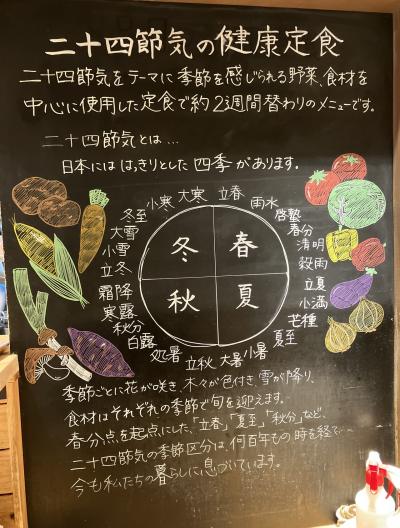 二十四節気の健康定食
二十四節気をテーマに季節を感じられる野菜、食材を
中心に使用した定食で約2週間替わりのメニューです。
二十四節気とは…
日本にははっきりとした四季があります。
立春
雨水
啓蟄
春分
清明
穀雨
立夏
小満
芒種
夏至
小暑
大暑
立秋
処暑
白露
秋分
寒露
霜降
立冬
小雪
大雪
冬至
小寒
大寒
冬 春
秋 夏
季節ごとに花が咲き、木々が色付き、雪が降り、
食材はそれぞれの季節で旬を迎えます。
春分点を起点にした、「立春」「夏至」「秋分」など、
二十四節気の季節区分は、何百年もの時を経て…
今も私たちの暮らしに息づいています。